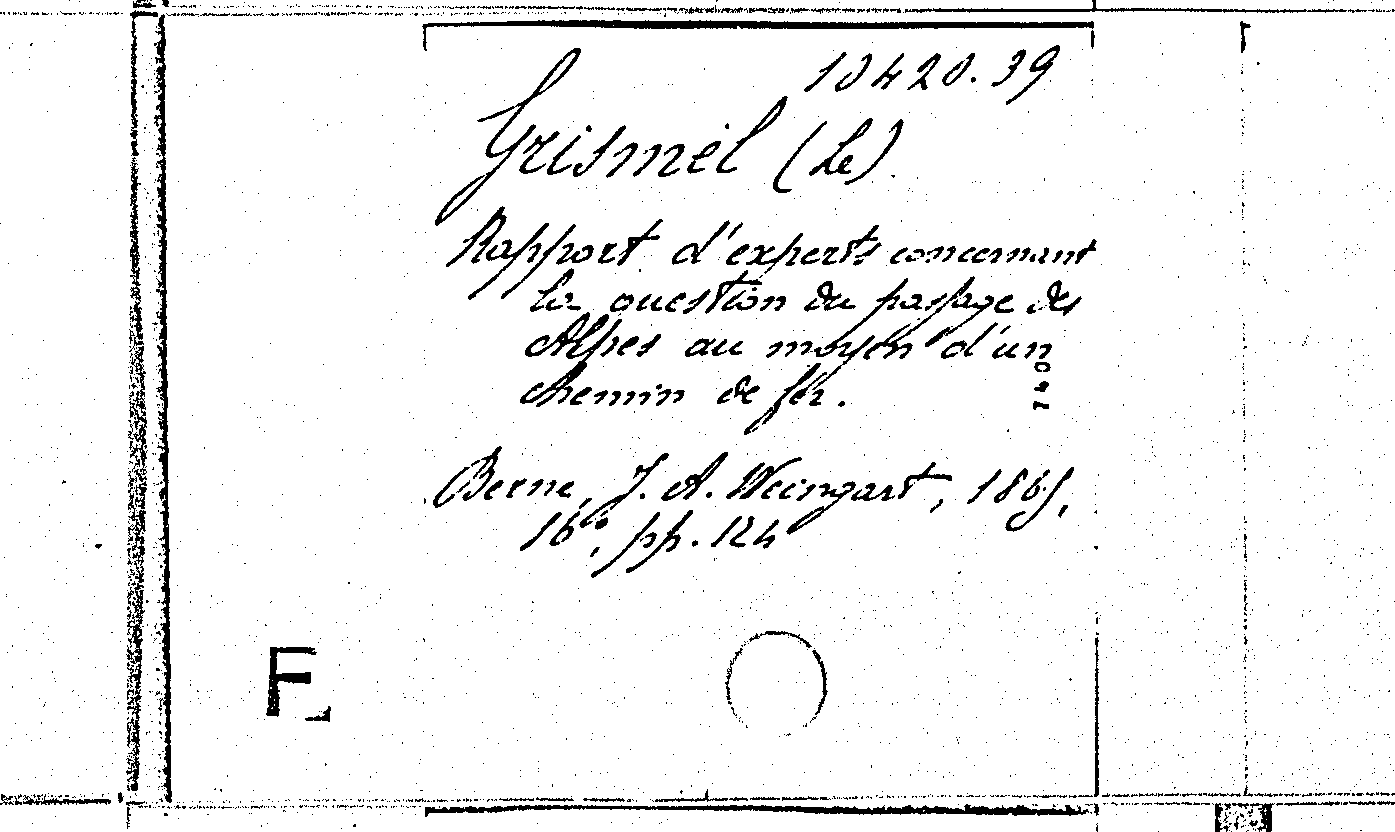 10420.39
Grismel (Le)
Rapport d'experts concernant
la question du passage des
Alpes au moyen d'un
chemin de fer.
Berne, J. A. Weingart, 1865,
16°, pp. 124
F